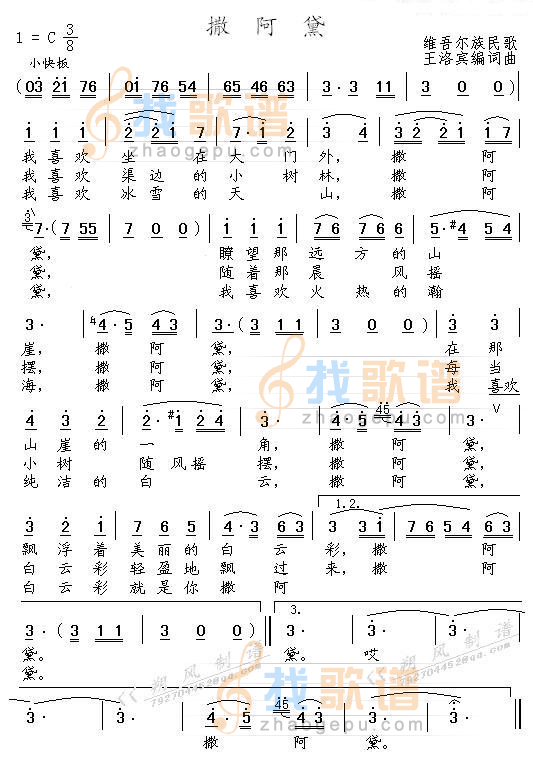 撒 阿 黛
1 = C 3/8
维吾尔族民歌
王洛宾编词曲
小快板
( 03 21 76 | 01 76 54 | 65 46 63 | 3· 3 11 | 3 0 0 )
1 1 1 | 2 2 2 | 7 6 7 1 2 | 3 4 | 3 2 2 1 | 1 7
我喜欢 坐 在大 门外, 撒 阿
我喜欢 渠边的小 树林, 撒 阿
我喜欢 冰雪的天 山, 撒 阿
7· ( 7 55 | 7 0 0 ) | 1 1 1 | 7 6 7 6 | 5·#4 5 4
黛, 瞭望那远方的山
黛, 随着那晨 风摇
黛, 我喜欢火热的瀚
3· | 4·5 43 | 3· ( 3 11 | 3 0 0 ) | 3 3
崖, 撒阿 黛, 在那
摆, 撒阿 黛, 每当
海, 撒阿 黛, 我喜欢
4 3 2 | 2·#1 2 4 | 3· | 4·5 4 3 | 3·
山崖的一 角, 撒阿黛,
小树 随风摇 摆, 撒阿黛,
纯洁的白 云, 撒阿黛,
1.2.
3 2 1 | 7 6 5 | 2· 3 4 | 63 | 3 3 1 | 7 6 5 4 | 6 4
飘浮着美丽的白 云 彩, 撒 阿
白云彩轻盈地飘 过 来, 撒 阿
白云彩就是你撒 阿
3.
3· ( 3 11 | 3 0 0 ) | 3· | 3·
黛。 黛。 哎
黛。
3· | 3· | 6· | 3· | 3· | 3·
撒 阿 黛。
找歌谱
zhaogepu.com
<<朔风制谱
792704452@qq.com>>